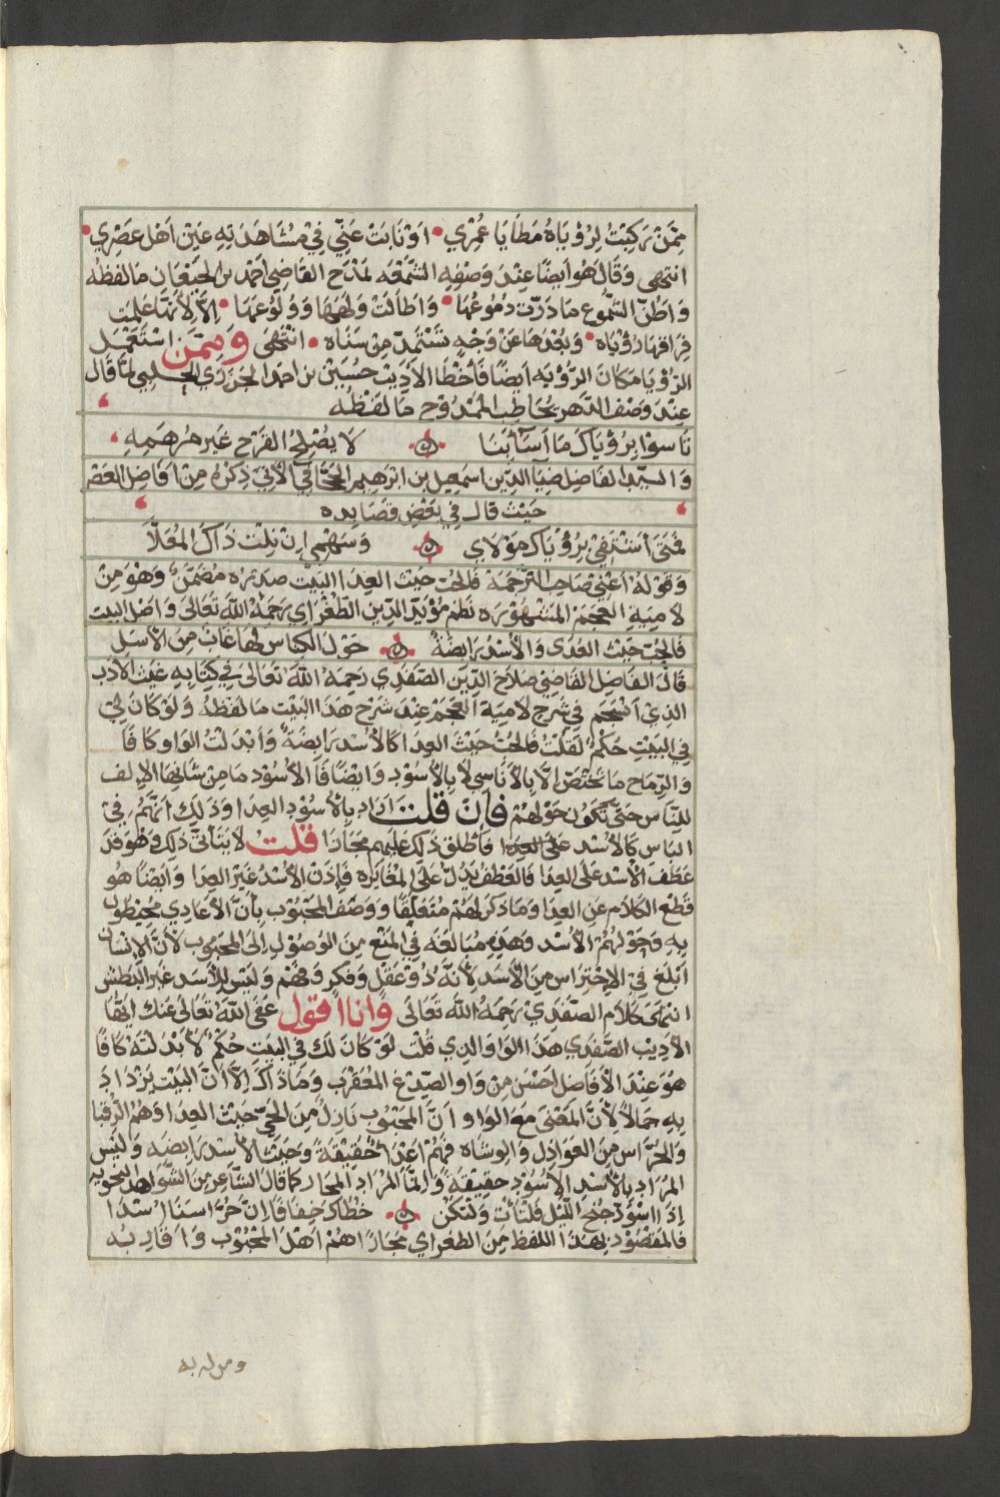 ممن ركبت لرؤياه مطايا عمري • او نابت عني في مشاهدته عين اهل عصري •
انتهى وقال هو ايضا عند وصفه الشمعه لمدح القاضي احمد بن الجيعان ما لفظه
واظن الشموع ما درّت دموعها • واطالت ولهها وولوعها • الا لانها علمت
فراقها رؤياه • وبعدها عن وجه تستمد من سناه • انتهى وممن استعمل
الرؤيا مكان الرؤيه ايضا فأخطا الاديب حسين بن احمد الجزري الحلبي لما قال
عند وصف الدهر يخاطب الممدوح ما لفظه
تاسوا برؤياك ما اسأتنا لا يصلح القرح غير مرهمه
والسيد الفاضل ضياالدين اسمعيل بن ابرهيم الحجافي الاتي ذكره من افاضل العصر
حيث قال في بعض قصايده
متى أستشفي برؤياك مولاي وسهمي ان نلت ذاك المعلا
وقوله اعني صاحب الترجمة فالحب حيث العدا البيت صدره مضمن وهو من
لامية العجم المشهوره نظم مؤيد الدين الطغراي رحمه الله تعالى واصل البيت
فالحب حيث العدى والأسد رابضة حول الكناس لها غاب من الأسل
قال الفاضل القاضي صلاح الدين الصفدي رحمه الله تعالى في كتابه غيث الادب
الذي انسجم في شرح لامية العجم عند شرح هذا البيت ما لفظه ولو كان لي
في البيت حكم لقلت فالحب حيث العدا كالأسد رابضة وأبدلت الواو كافا
والرماح ما تختص الا بالاناسي لا بالأسود وايضا فالأسود ما من شانها الالف
للناس حتى تكون حولهم فان قلت اراد بالأسود العدا وذلك انهم في
الباس كالأسد على العدا فأطلق ذلك عليهم مجازا قلت لا يتأتى ذلك وهو قد
عطف الأسد على العدا فالعطف يدل على المغايره فاذن الأسد غير العدا وايضا هو
قطع الكلام عن العدا وما ذكر لهم متعلقا ووصف المحبوب بأن الأعادي محيطون
به وحولهم الأسد وهذه مبالغه في المنع من الوصول الى المحبوب لأن الإنسان
ابلغ في الاحتراس من الأسد لأنه ذو عقل وفكر وفهم وليس للأسد غير البطش
انتهى كلام الصفدي رحمه الله تعالى وانا أقول عفى الله تعالى عنك ايها
الأديب الصفدي هذا الواو الذي قلت لو كان لك في البيت حكم لأبدلته كافا
هو عند الأفاضل احسن من واو الصدغ المعقرب وما ذاك الا ان البيت يزداد
به جمالا لأن المعنى مع الواو ان المحبوب نازل من الحي حيث العدا وهم الرقبا
والحراس من العواذل والوشاه فهم اعدا حقيقة وحيث الأسد رابضه وليس
المراد بالأسد الأسود حقيقة وانما المراد المجاز كما قال الشاعر من الشواهد النحويه
اذا اسود جنح الليل فلتأت ولتكن خطاك خفافا ان حراسنا اسدا
فالمقصود بهذا اللفظ من الطغراي مجازا هم اهل المحبوب واقاربه
ومن له به